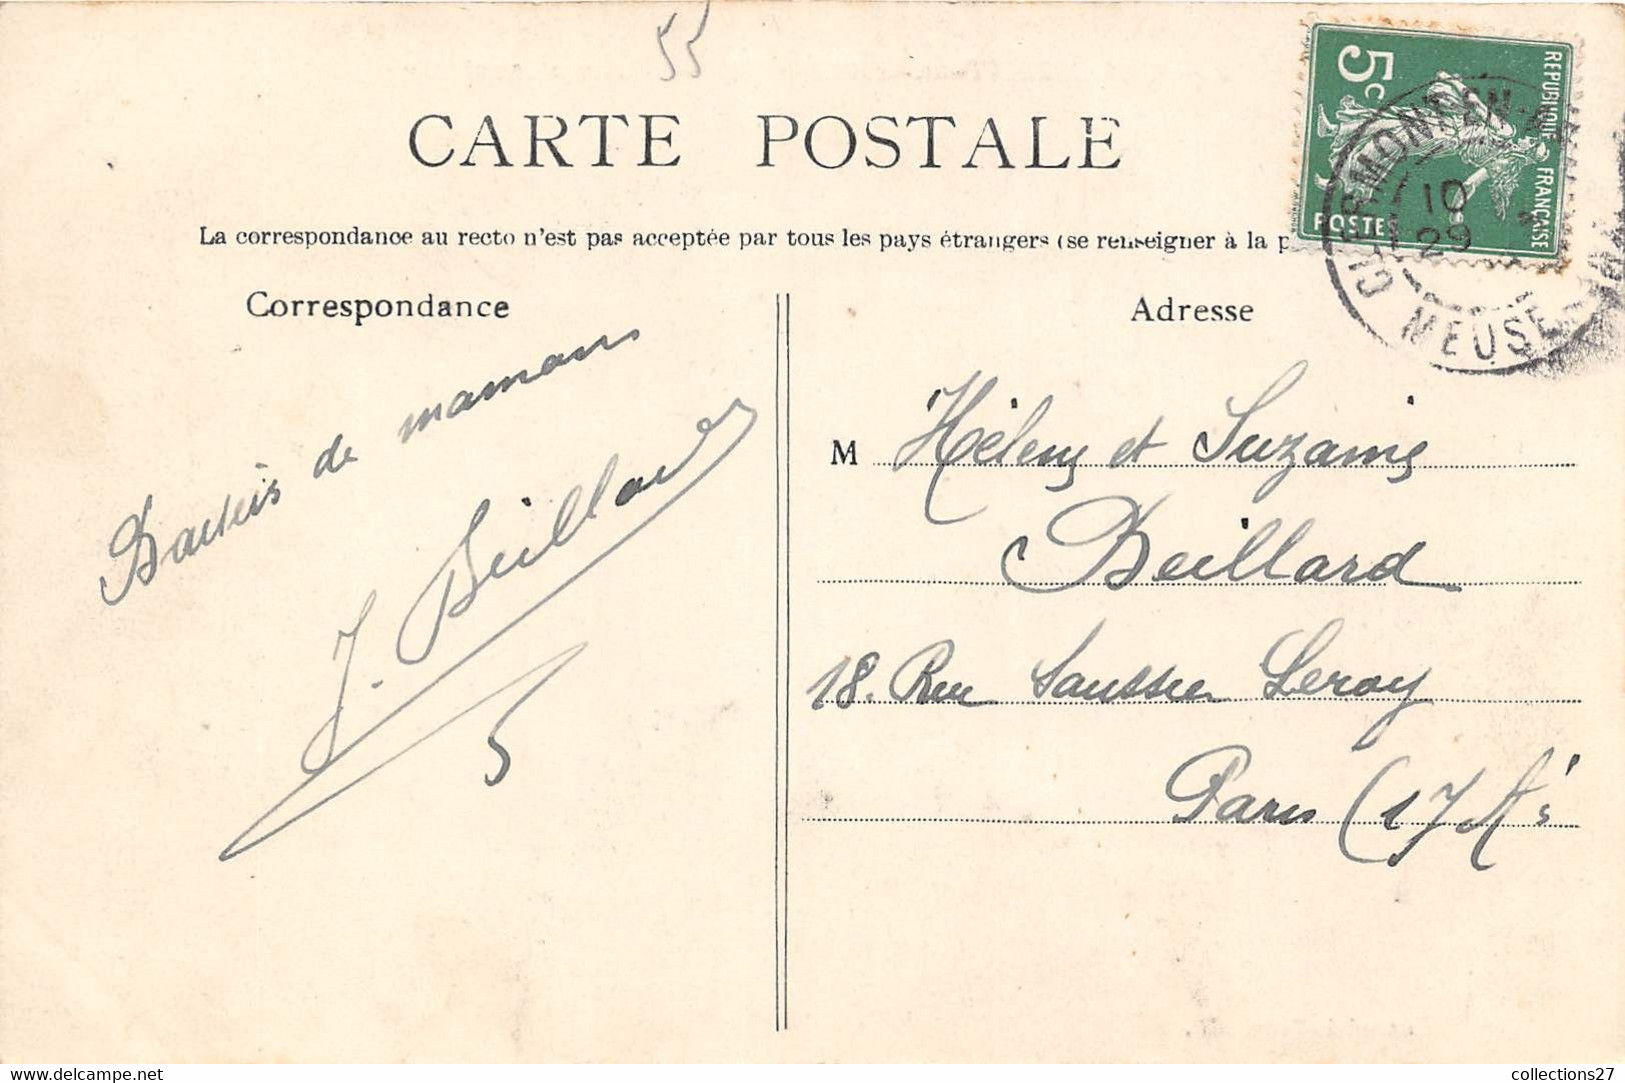 55
CARTE POSTALE
La correspondance au recto n'est pas acceptée par tous les pays étrangers (se renseigner à la p
5c
REPUBLIQUE FRANÇAISE
POSTES
CLERMONT-EN-
10
29
MEUSE
Correspondance
Adresse
Baisers de maman
J. Beillard
5
M Hélène et Suzanne
Beillard
18. Rue Saussier Leroy
Paris (17 Ar
collections27